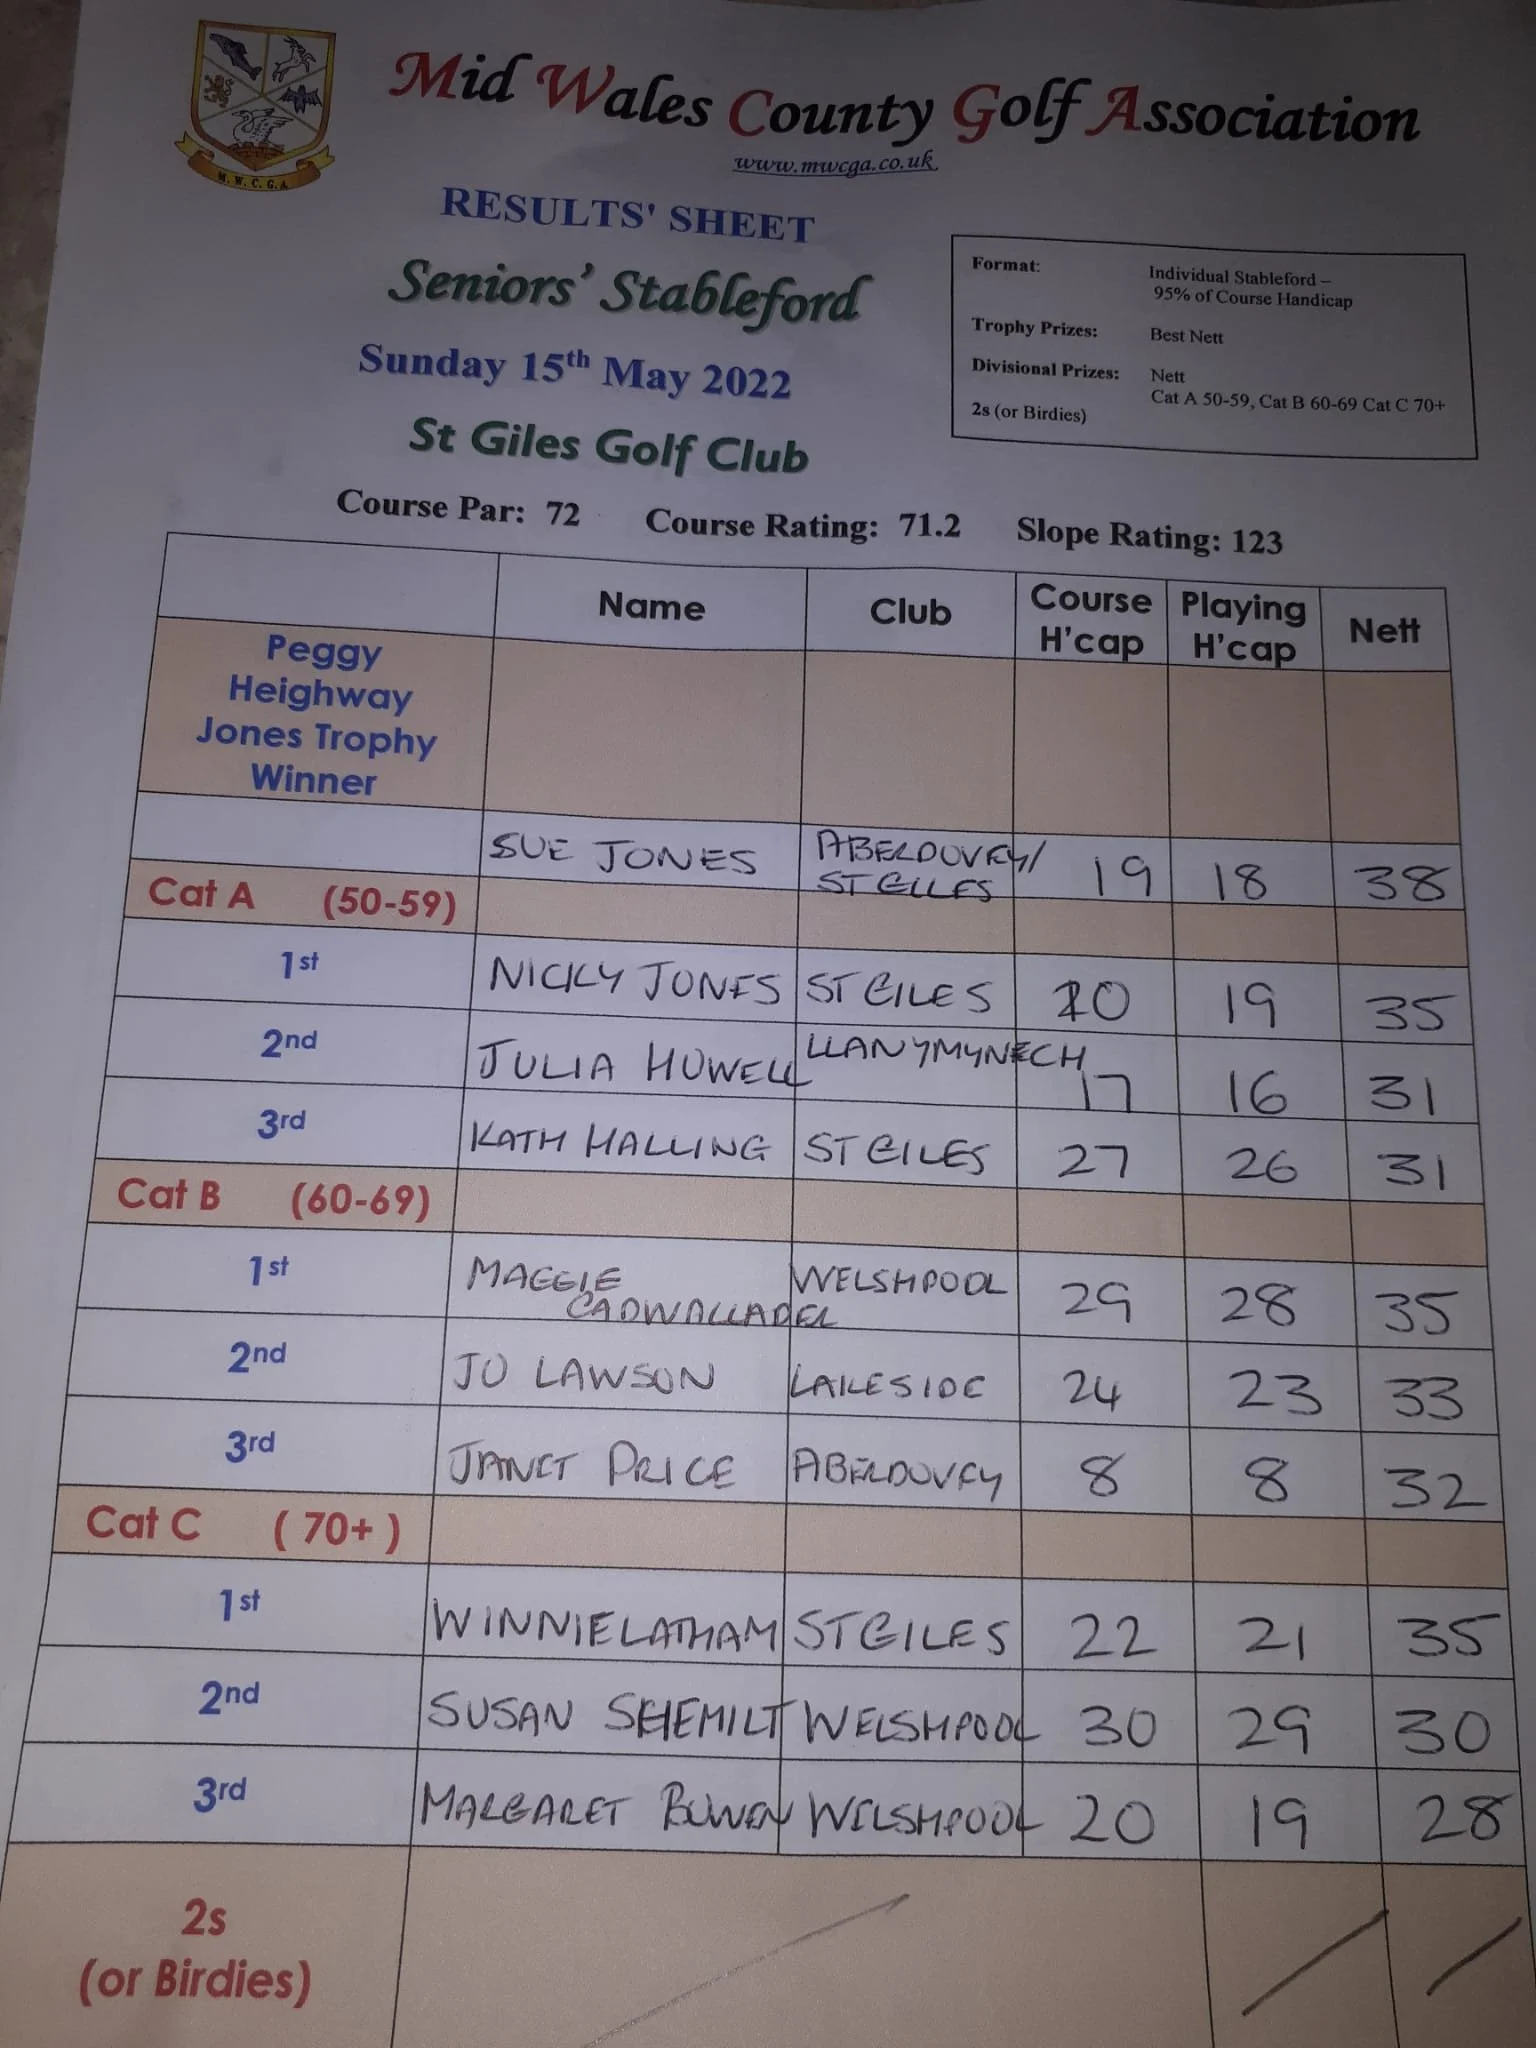 M. W. C. G. A.
Mid Wales County Golf Association
www.mwcga.co.uk
RESULTS' SHEET
Seniors' Stableford
Sunday 15th May 2022
St Giles Golf Club
Format: Individual Stableford –
95% of Course Handicap
Trophy Prizes: Best Nett
Divisional Prizes: Nett
Cat A 50-59, Cat B 60-69 Cat C 70+
2s (or Birdies)
Course Par: 72 Course Rating: 71.2 Slope Rating: 123
Name Club Course H'cap Playing H'cap Nett
Peggy
Heighway
Jones Trophy
Winner
SUE JONES ABERDOVEY/ ST GILES 19 18 38
Cat A (50-59)
1st NICKY JONES ST GILES 20 19 35
2nd JULIA HOWELL LLANYMYNECH 17 16 31
3rd KATH HALLING ST GILES 27 26 31
Cat B (60-69)
1st MAGGIE CADWALLADER WELSHPOOL 29 28 35
2nd JO LAWSON LAKESIDE 24 23 33
3rd JANET PRICE ABERDOVEY 8 8 32
Cat C ( 70+ )
1st WINNIE LATHAM ST GILES 22 21 35
2nd SUSAN SKEMILT WELSHPOOL 30 29 30
3rd MARGARET BOWEN WELSHPOOL 20 19 28
2s
(or Birdies)